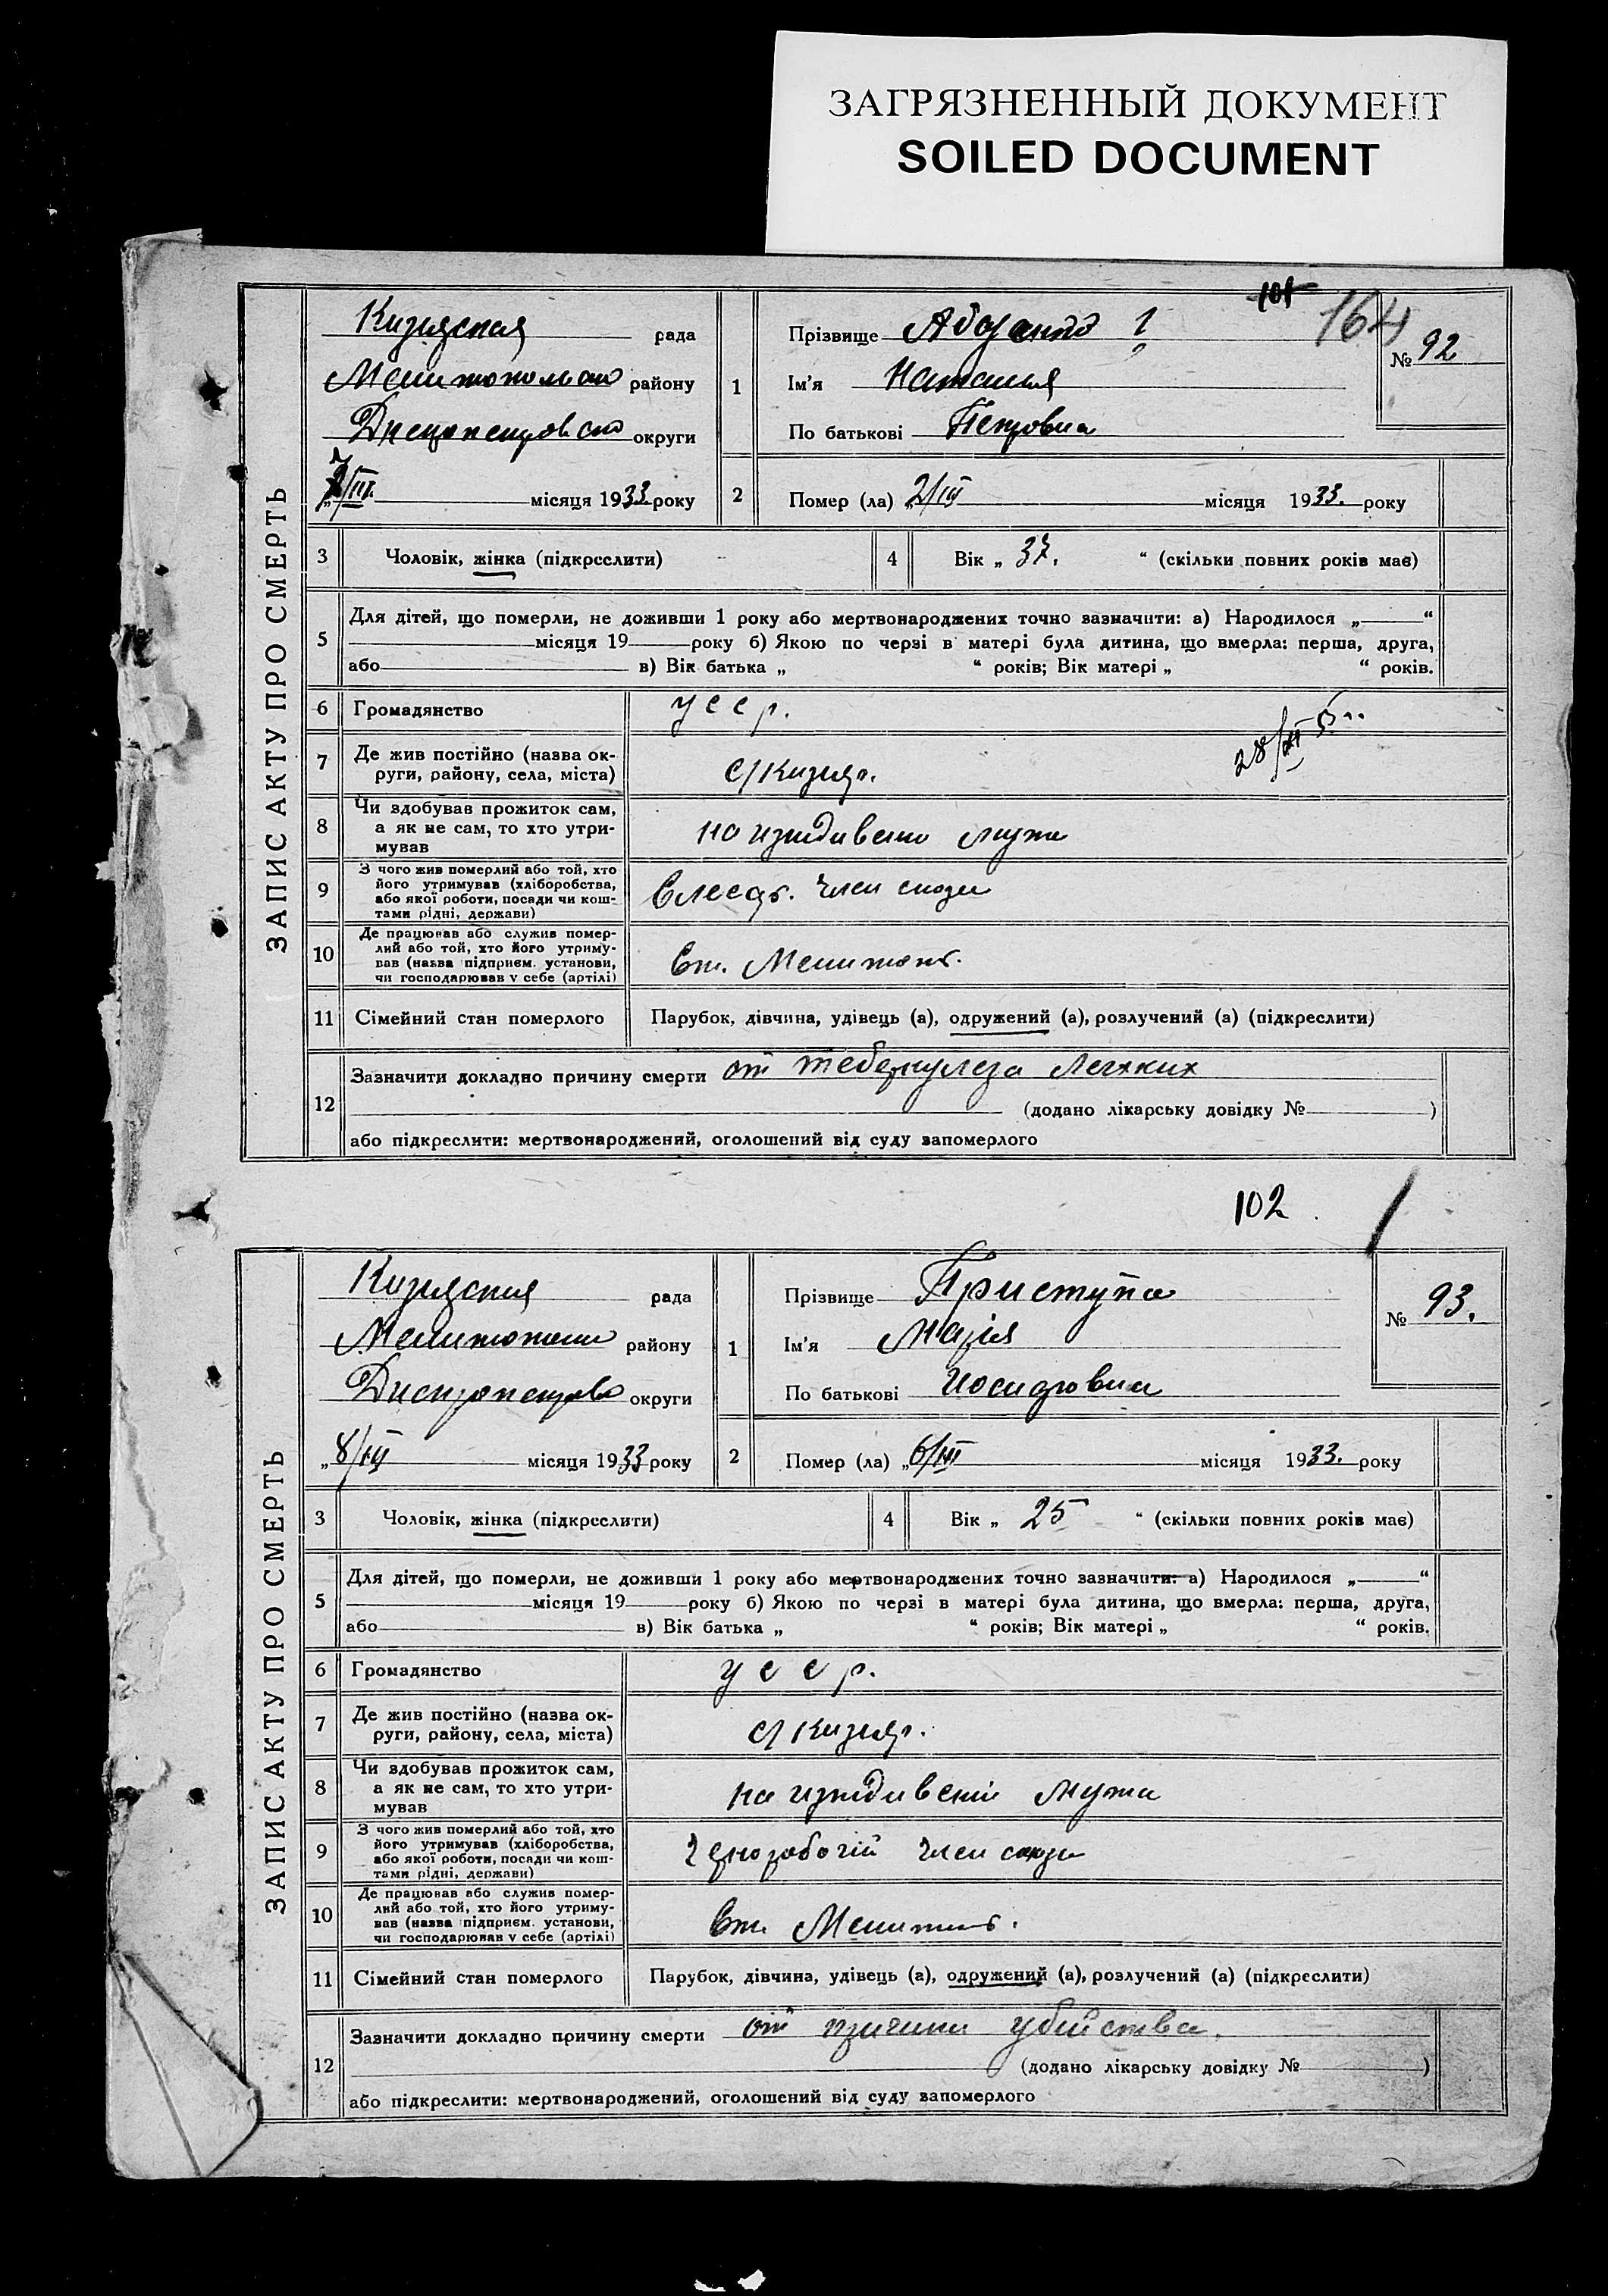 ЗАГРЯЗНЕННЫЙ ДОКУМЕНТ
SOILED DOCUMENT
ЗАПИС АКТУ ПРО СМЕРТЬ
101
164
№ 92
рада
району
округи
місяця 1933 року
1
Прізвище
Ім'я Наталия
По батькові Петровна
2 Помер (ла) „2/III місяця 1933. року
3 Чоловік, жінка (підкреслити)
4 Вік „ 37. “ (скільки повних років має)
5 Для дітей, що померли, не доживши 1 року або мертвонароджених точно зазначити: а) Народилося „ “
місяця 19 року б) Якою по черзі в матері була дитина, що вмерла: перша, друга,
або в) Вік батька „ “ років; Вік матері „ “ років.
6 Громадянство УССР.
7 Де жив постійно (назва ок-
руги, району, села, міста) с/Кизияр.
8 Чи здобував прожиток сам,
а як не сам, то хто утри-
мував на иждивени мужа
9 З чого жив померлий або той, хто
його утримував (хліборобства,
або якої роботи, посади чи кош-
тами рідні, держави) Слесар. член союза
10 Де працював або служив помер-
лий або той, хто його утриму-
вав (назва підприєм. установи,
чи господарював у себе (артілі) ст. Мелитоп.
11 Сімейний стан померлого Парубок, дівчина, удівець (а), одружений (а), розлучений (а) (підкреслити)
12 Зазначити докладно причину смерти от теберкулеза Легхких
(додано лікарську довідку № )
або підкреслити: мертвонароджений, оголошений від суду запомерлого
102
ЗАПИС АКТУ ПРО СМЕРТЬ
№ 93.
Кизиярская рада
району
округи
„8/III місяця 1933 року
1
Прізвище Приступа
Ім'я Марія
По батькові
2 Помер (ла) „6/III місяця 1933. року
3 Чоловік, жінка (підкреслити)
4 Вік „ 25 “ (скільки повних років має)
5 Для дітей, що померли, не доживши 1 року або мертвонароджених точно зазначити: а) Народилося „ “
місяця 19 року б) Якою по черзі в матері була дитина, що вмерла: перша, друга,
або в) Вік батька „ “ років; Вік матері „ “ років.
6 Громадянство УССР.
7 Де жив постійно (назва ок-
руги, району, села, міста) с/Кизияр.
8 Чи здобував прожиток сам,
а як не сам, то хто утри-
мував на иждивеніи мужа
9 З чого жив померлий або той, хто
його утримував (хліборобства,
або якої роботи, посади чи кош-
тами рідні, держави) член союза
10 Де працював або служив помер-
лий або той, хто його утриму-
вав (назва підприєм. установи,
чи господарював у себе (артілі) ст. Мелитоп.
11 Сімейний стан померлого Парубок, дівчина, удівець (а), одружений (а), розлучений (а) (підкреслити)
12 Зазначити докладно причину смерти от причини убийства.
(додано лікарську довідку № )
або підкреслити: мертвонароджений, оголошений від суду запомерлого